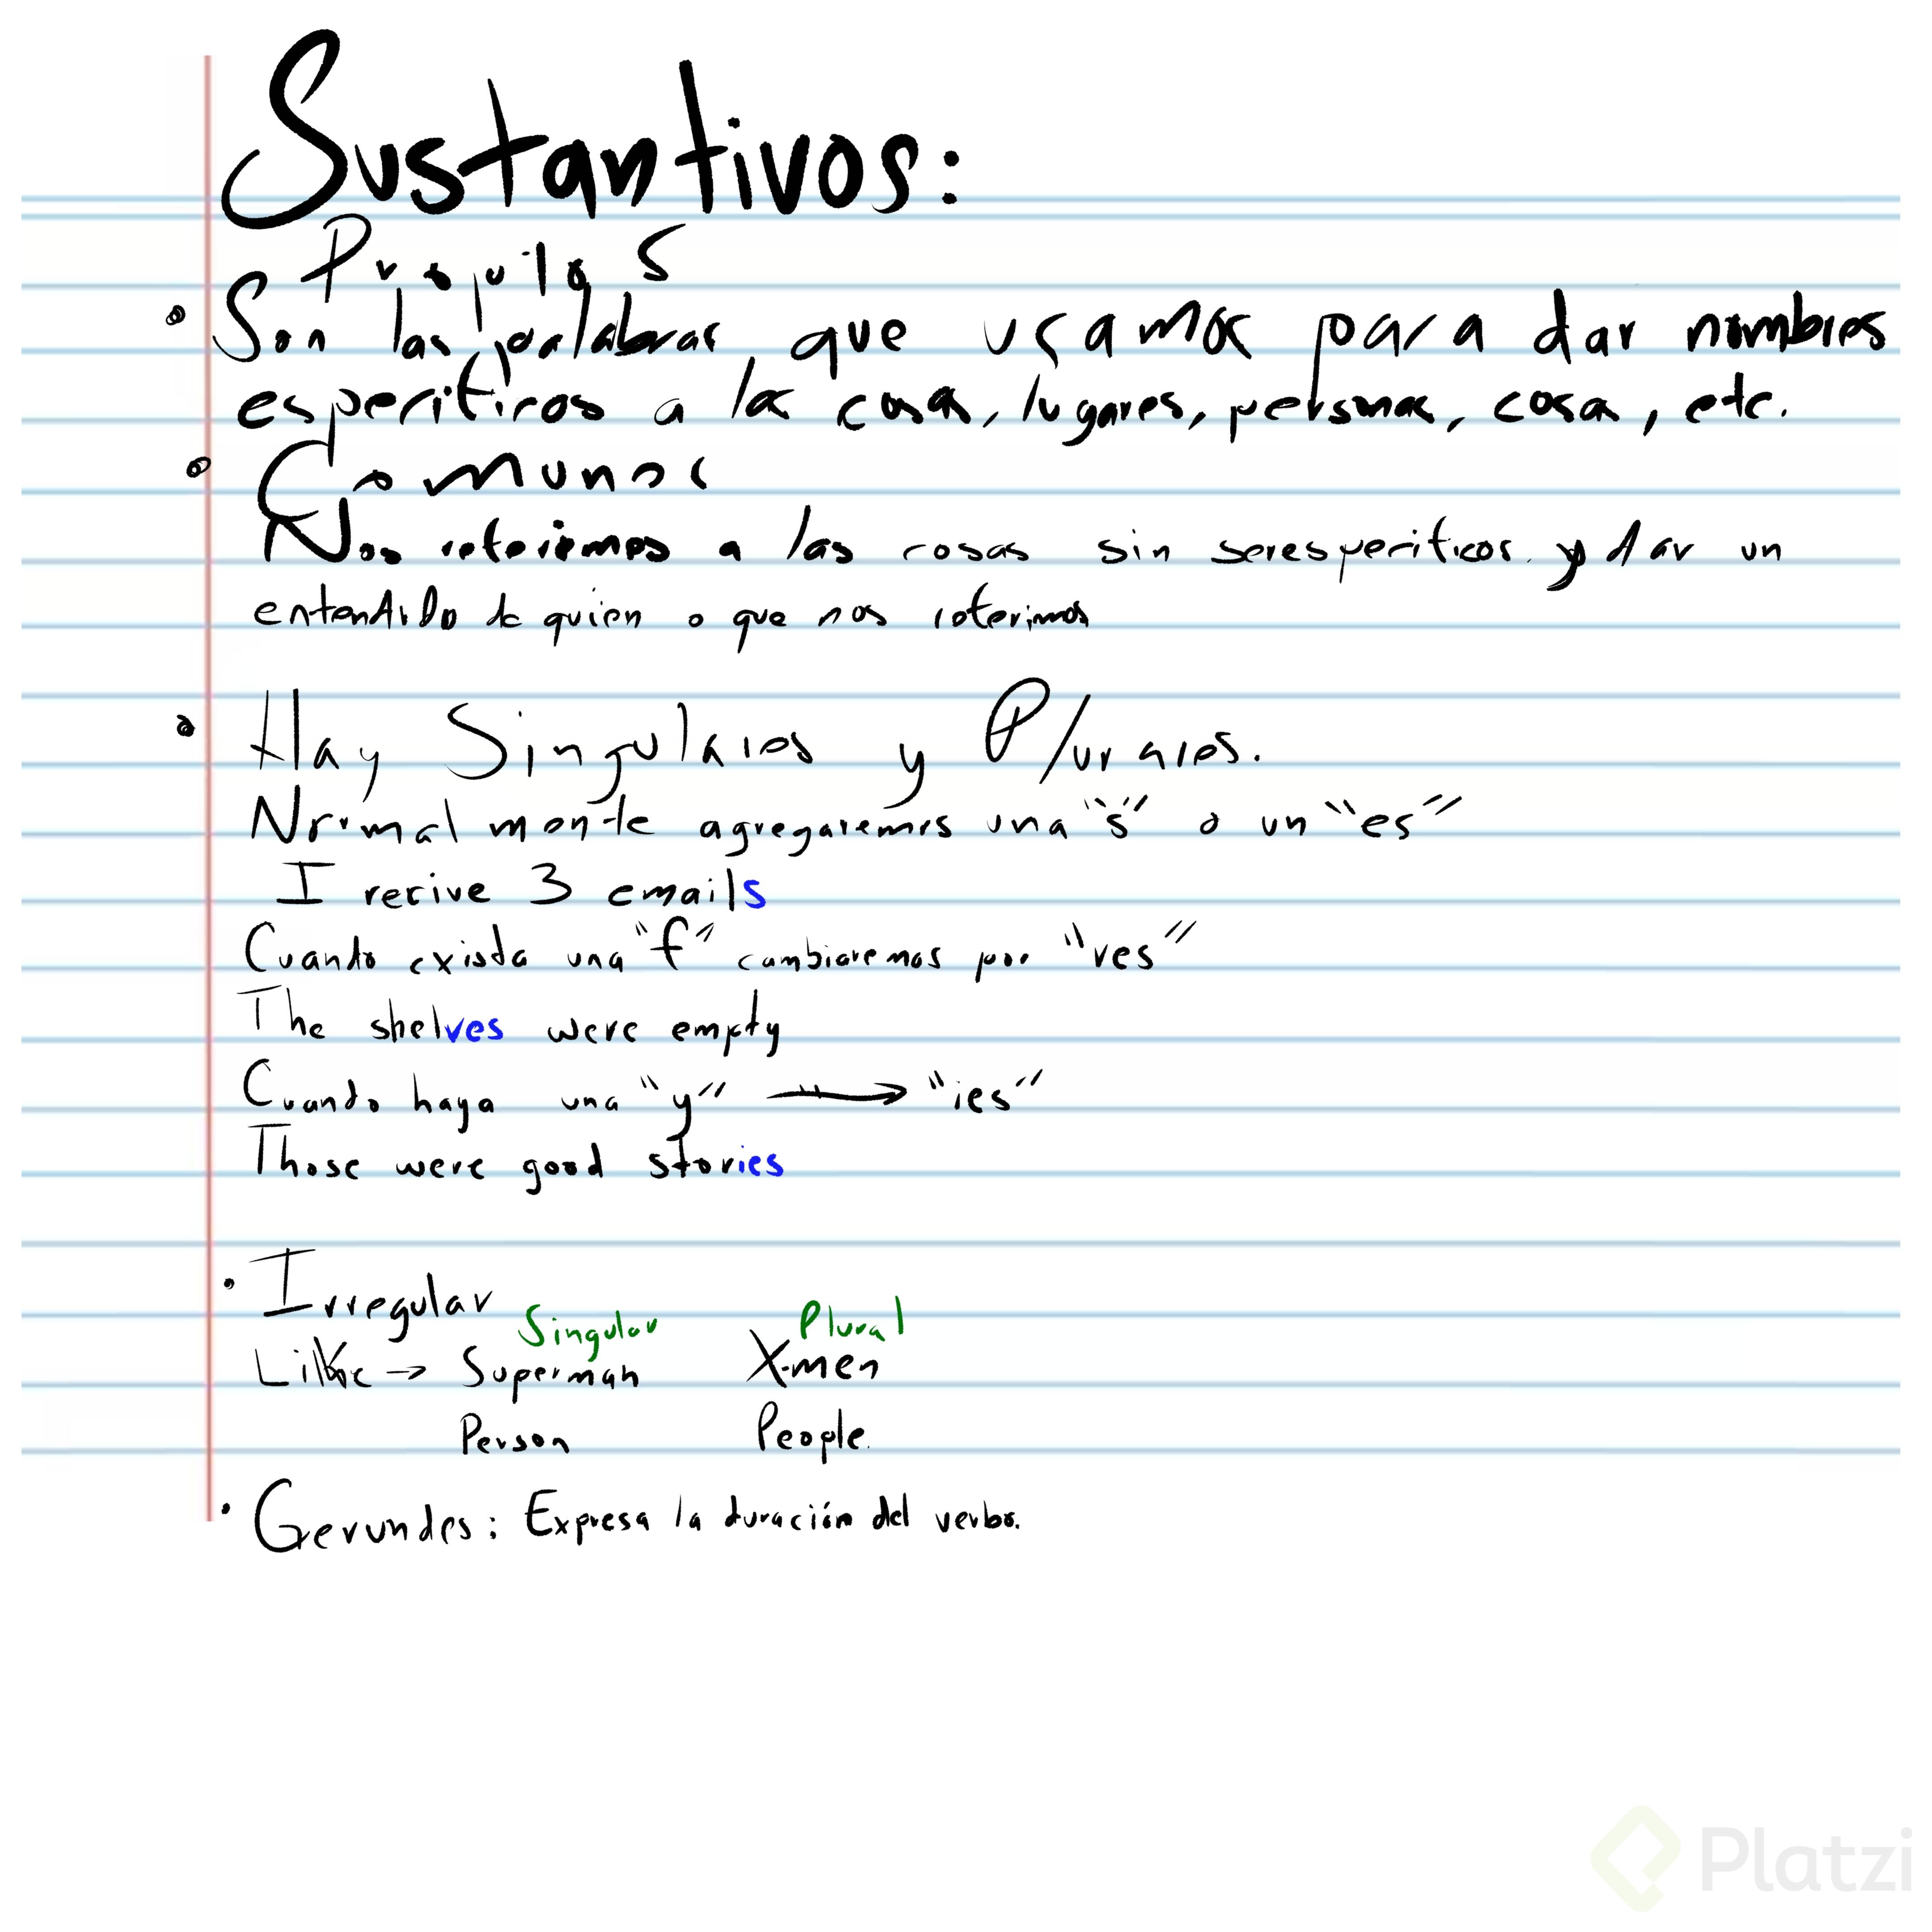 Sustantivos:
Propios
Son las palabras que usamos para dar nombres
especificos a la cosa, lugares, personas, cosas, etc.
Comunes
Nos referiremos a las cosas sin ser especificos y dar un
entendido de quien o que nos referimos
Hay Singulares y Plurares.
Normalmente agregaremos una "s" o un "es"
I recive 3 emails
Cuando exista una "f" cambiaremos por "ves"
The shelves were empty
Cuando haya una "y" → "ies"
Those were good stories
Irregular
Singular Plural
Like → Superman X-men
Person People.
Gerundes: Expresa la duración del verbo.
Platzi